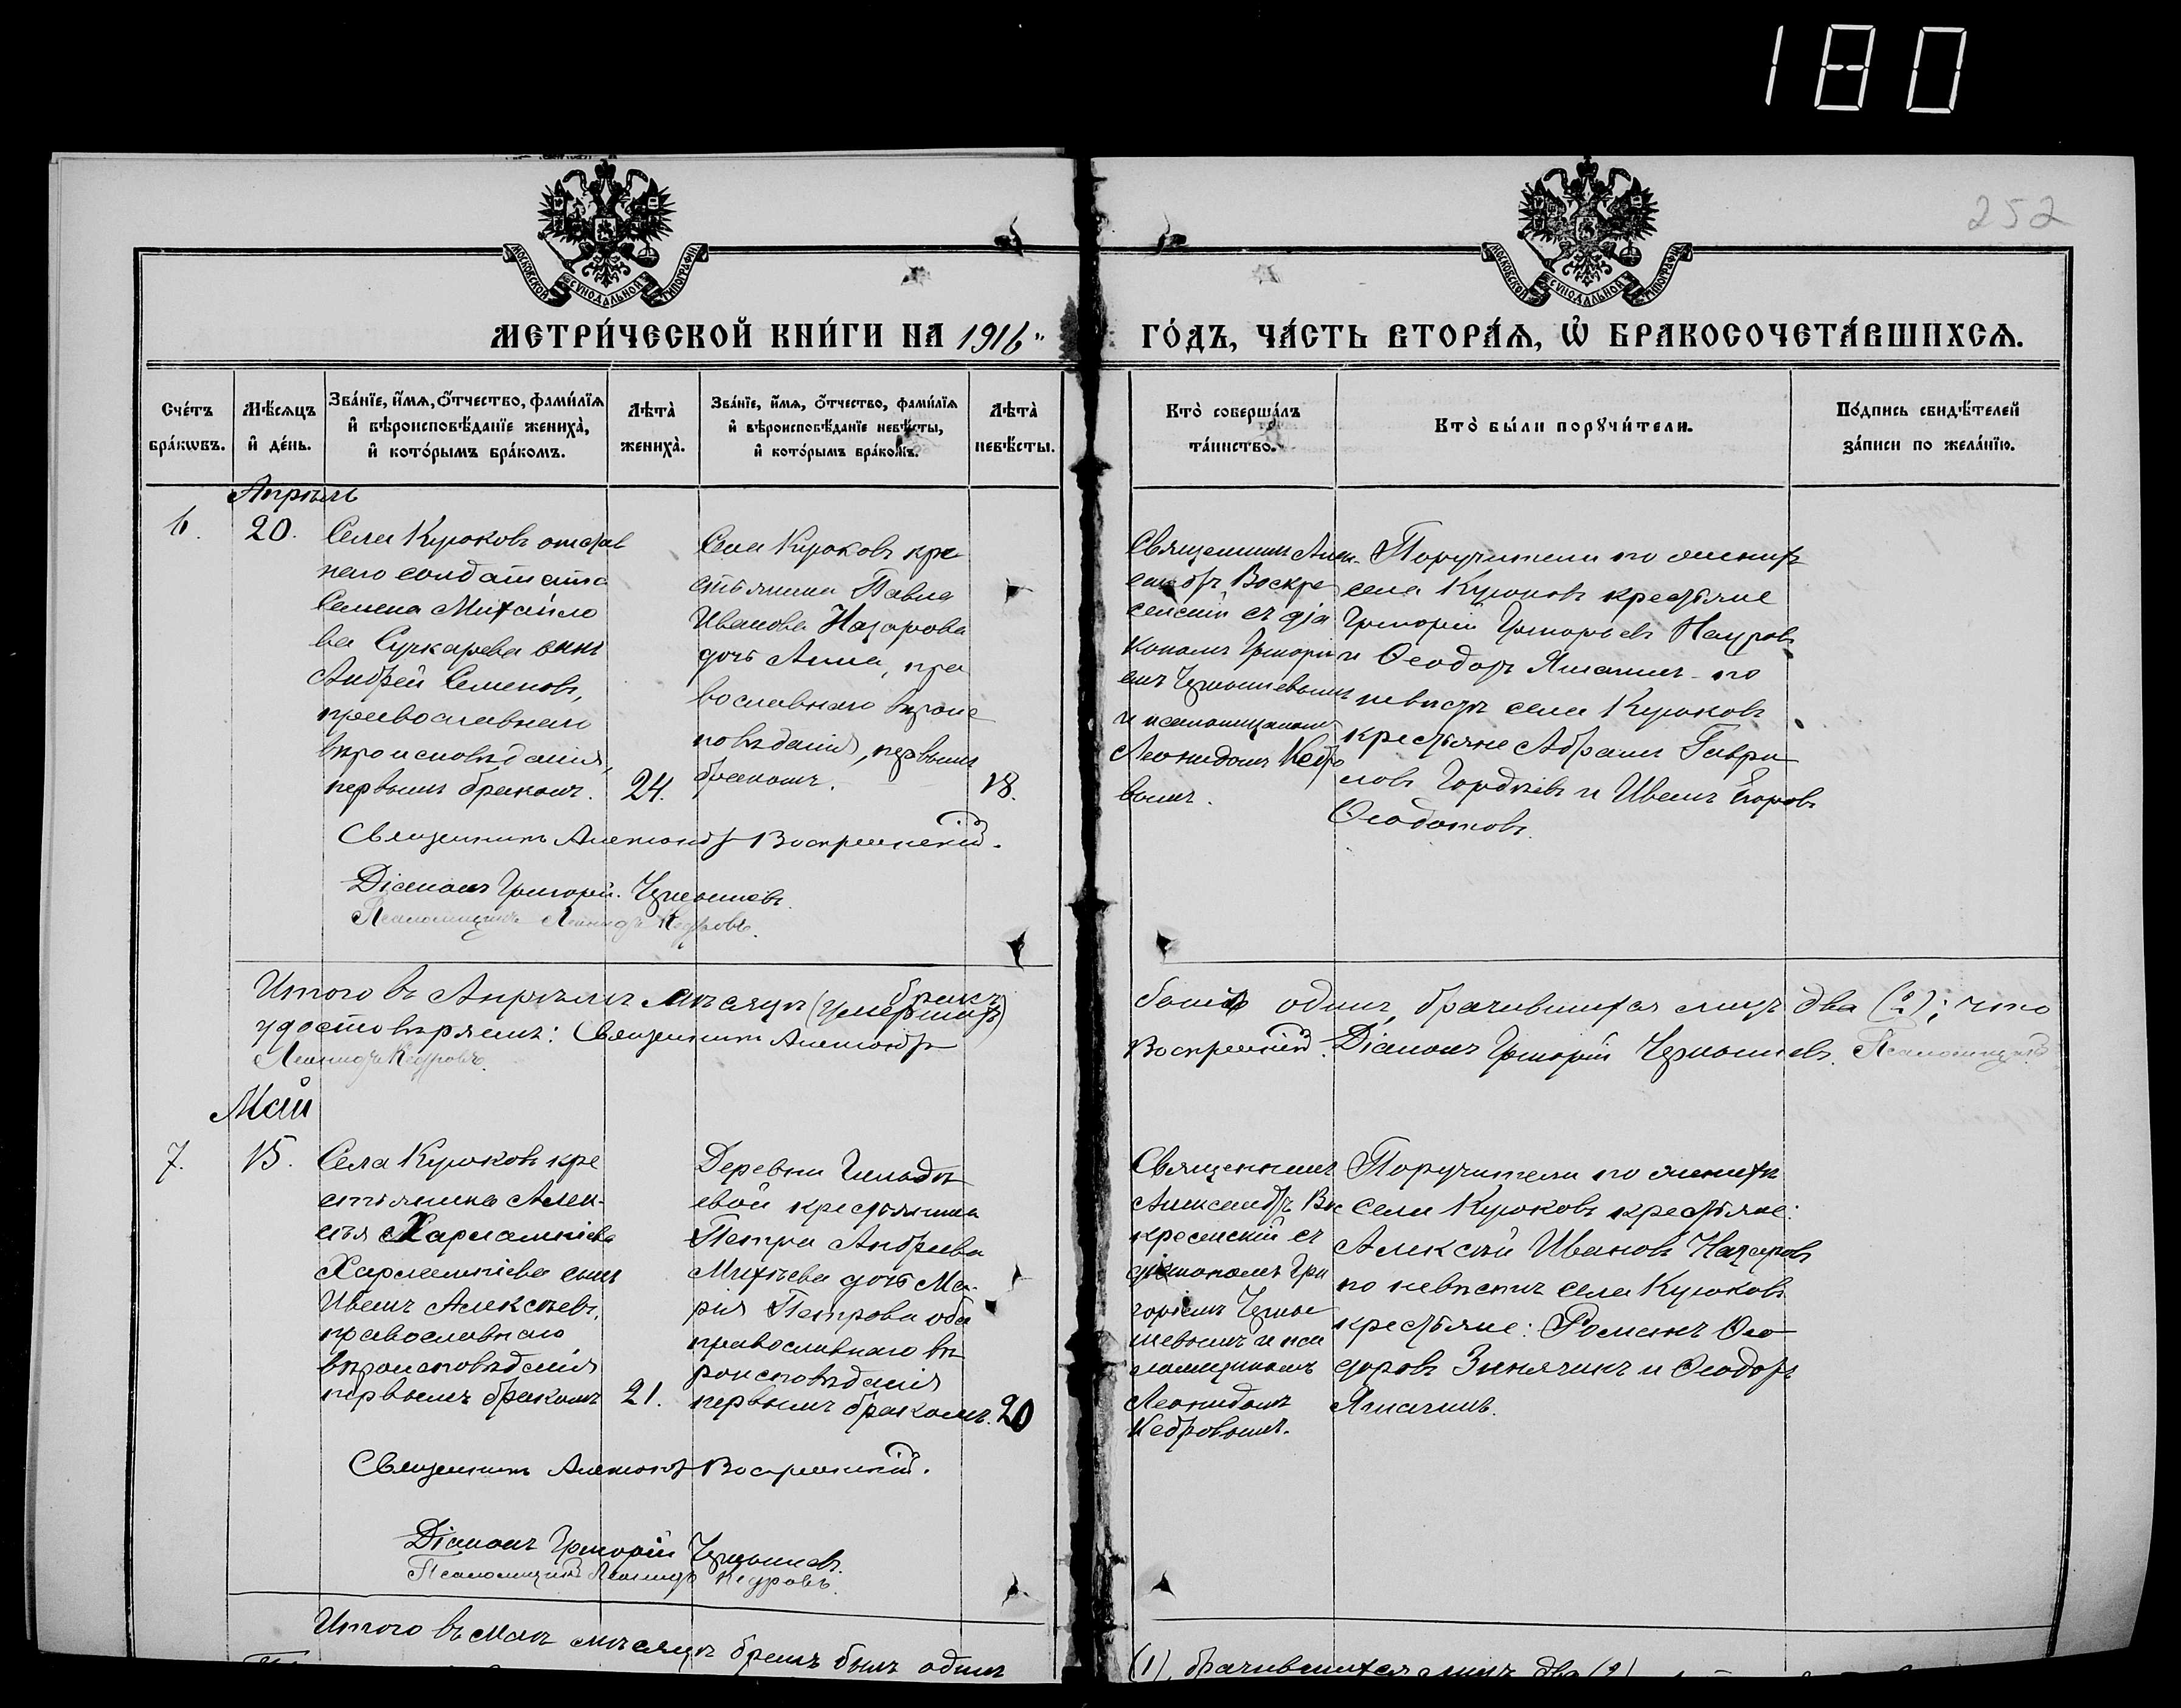 180
252
МОСКОВСКОЙ СѴНОДАЛЬНОЙ ТИПОГРАФІИ.
МОСКОВСКОЙ СѴНОДАЛЬНОЙ ТИПОГРАФІИ.
МЕТРИ́ЧЕСКОЙ КНИ́ГИ НА 1916
ГО́ДЪ, ЧА́СТЬ ВТОРА́Ѧ, Ѡ҆ БРАКОСОЧЕТА́ВШИХСѦ.
Сче́тъ
бра́кѡвъ.
Мѣ́сѧцъ
и҆ де́нь.
Зва́нїе, и҆́мѧ, ѻ҆́тчество, фами́лїѧ
и҆ вѣроисповѣ́данїе жениха̀,
и҆ кото́рымъ бра́комъ.
Лѣта̀
жениха̀.
Зва́нїе, и҆́мѧ, ѻ҆́тчество, фами́лїѧ
и҆ вѣроисповѣ́данїе невѣ́сты,
и҆ кото́рымъ бра́комъ.
Лѣта̀
невѣ́сты.
Кто̀ соверша́лъ
та́инство.
Кто̀ бы́ли порꙋчи́тели.
По́дпись свидѣ́телей
за́писи по жела́нїю.
Апрѣль
6.
20.
Села Курковъ отстав
наго солдата
Семена Михайло
ва Сучкарева сынъ
Андрей Семеновъ,
православнаго
вѣроисповѣданія,
первымъ бракомъ.
24.
Села Курковъ кре
стьянина Павла
Иванова Назарова
дочь Анна, пра
вославнаго вѣроис
повѣданія, первымъ
бракомъ.
18.
Священникъ Алек-
сандръ Воскре
сенскій съ діа
кономъ Григорі
емъ Чернышевымъ
и псаломщикомъ
Леонидомъ Кедро
вымъ.
Поручители по женихѣ
села Курковъ крестьяне
Григорій Григорьевъ Назровъ
и Ѳеодоръ Ямаинъ по
невѣстѣ села Курковъ
крестьяне Абрамъ Гаври
ловъ Гордѣевъ и Иванъ Егоровъ
Ѳедотовъ.
Священникъ Александръ Воскресенскій.
Діаконъ Григорій Чернышевъ.
Псаломщикъ Леонидъ Кедровъ.
Итого въ Апрѣлѣ мѣсяцѣ (умершихъ) бракъ
былъ одинъ, брачившихся лицъ два (2); что
удостовѣряемъ: Священникъ Александръ
Воскресенскій. Діаконъ Григорій Чернышевъ. Псаломщикъ
Леонидъ Кедровъ.
Май
7.
15.
Села Курковъ кре
стьянина Алек-
сѣя Харлампіева
Харлампіева сынъ
Иванъ Алексѣевъ,
православнаго
вѣроисповѣданія
первымъ бракомъ
21.
Деревни Гильдѣ
евой крестьянина
Петра Андреева
Михѣева дочь Ма-
рія Петрова оба
православнаго вѣ
роисповѣданія
первымъ бракомъ.
20
Священникъ
Александръ Вос
кресенскій съ
діакономъ Гри
горіемъ Черны
шевымъ и пса
ломщикомъ
Леонидомъ
Кедровымъ.
Поручители по женихѣ
села Курковъ крестьяне:
Алексѣй Ивановъ Назаровъ
по невѣстѣ села Курковъ
крестьяне: Романъ Ѳео
доровъ Зинячинъ и Ѳеодоръ
Ямаинъ.
Священникъ Александръ Воскресенскій.
Діаконъ Григорій Чернышевъ.
Псаломщикъ Леонидъ Кедровъ.
Итого въ Маѣ мѣсяцѣ бракъ былъ одинъ
(1), брачившихся лицъ два (2)